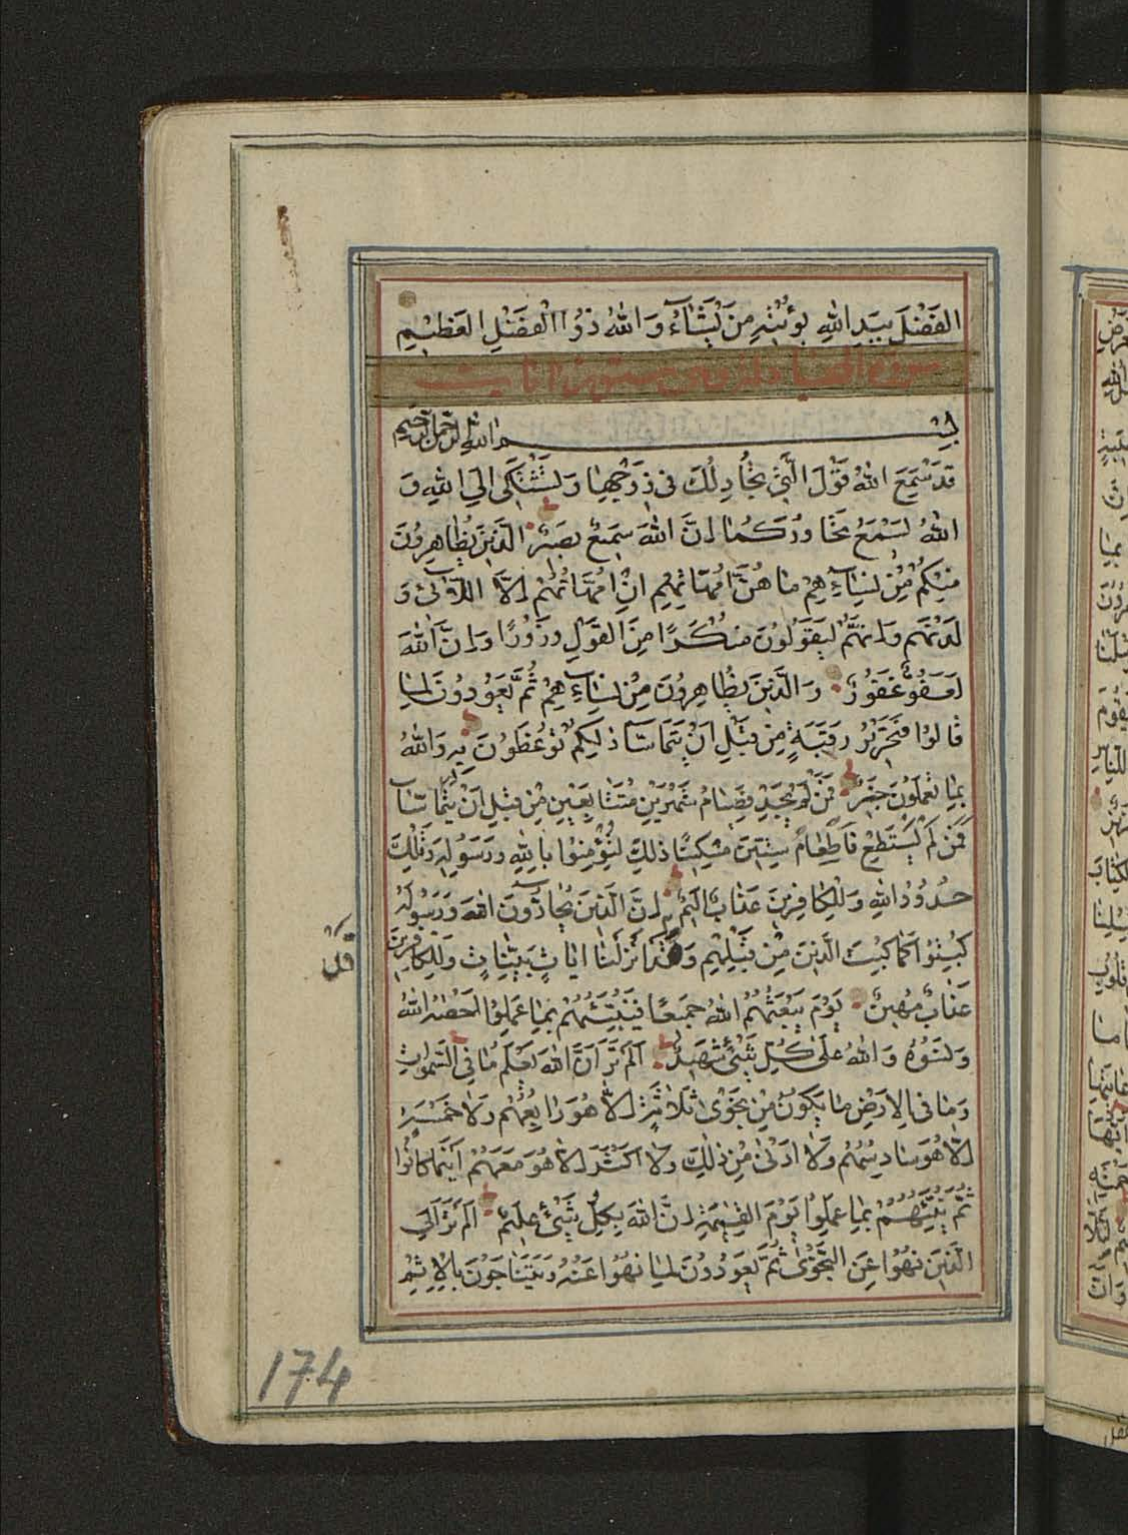 الفَضْلَ بِيَدِ اللّٰهِ يُؤْتِيْهِ مَنْ يَشَآءُ وَ اللّٰهُ ذُوا الْفَضْلِ العَظِيْمِ
سورة
بِسْمِ اللّٰهِ الرَّحْمٰنِ الرَّحِيمِ
قَدْ سَمِعَ اللّٰهُ قَوْلَ الَّتِى تُجَادِلُكَ فِى زَوْجِهَا وَ تَشْتَكِى اِلَى اللّٰهِ وَ
اللّٰهُ يَسْمَعُ تَحَاوُرَكُمَا اِنَّ اللّٰهَ سَمِيْعٌ بَصِيْرٌ الَّذِيْنَ يُظَاهِرُونَ
مِنْكُمْ مِنْ نِسَآءِهِمْ مَا هُنَّ اُمَّهَاتِهِمْ اِنْ اُمَّهَاتُهُمْ اِلَّا اللَّآئِى وَ
لَدْنَهُمْ وَ اِنَّهُمْ لَيَقُوْلُونَ مُنْكَرًا مِنَ القَوْلِ وَ زُوْرًا وَ اِنَّ اللّٰهَ
لَعَفُوٌّ غَفُوْرٌ وَ الَّذِيْنَ يُظَاهِرُوْنَ مِنْ نِسَآءِهِمْ ثُمَّ يَعُوْدُوْنَ لِمَا
قَالُوْا فَتَحْرِيْرُ رَقَبَةٍ مِنْ قَبْلِ اَنْ يَتَمَآسَّا ذٰلِكُمْ تُوْعَظُوْنَ بِهِ وَ اللّٰهُ
بِمَا تَعْمَلُوْنَ خَبِيْرٌ فَمَنْ لَمْ يَجِدْ فَصِيَامُ شَهْرَيْنِ مُتَتَابِعَيْنِ مِنْ قَبْلِ اَنْ يَتَمَاسَّا
فَمَنْ لَمْ يَسْتَطِعْ فَاِطْعَامُ سِتِّيْنَ مِسْكِيْنًا ذٰلِكَ لِتُؤْمِنُوْا بِاللّٰهِ وَ رَسُوْلِهِ وَ تِلْكَ
حُدُوْدُ اللّٰهِ وَ لِلْكَافِرِيْنَ عَذَابٌ اَلِيْمٌ اِنَّ الَّذِيْنَ يُحَآدُّوْنَ اللّٰهَ وَ رَسُوْلَهُ
كُبِتُوْا كَمَا كُبِتَ الَّذِيْنَ مِنْ قَبْلِهِمْ وَ قَدْ اَنْزَلْنَا اٰيَاتٍ بَيِّنَاتٍ وَ لِلْكَافِرِيْنَ
قَدْ
عَذَابٌ مُهِيْنٌ يَوْمَ يَبْعَثُهُمُ اللّٰهُ جَمِيْعًا فَيُنَبِّئُهُمْ بِمَا عَمِلُوْا اَحْصٰهُ اللّٰهُ
وَ نَسُوْهُ وَ اللّٰهُ عَلٰى كُلِّ شَيْئٍ شَهِيْدٌ اَلَمْ تَرَ اَنَّ اللّٰهَ يَعْلَمُ مَا فِى السَّمٰوَاتِ
وَ مَا فِى الاَرْضِ مَا يَكُوْنُ مِنْ نَجْوٰى ثَلَاثَةٍ اِلَّا هُوَ رَابِعُهُمْ وَ لَا خَمْسَةٍ
اِلَّا هُوَ سَادِسُهُمْ وَ لَا اَدْنٰى مِنْ ذٰلِكَ وَ لَا اَكْثَرَ اِلَّا هُوَ مَعَهُمْ اَيْنَمَا كَانُوْا
ثُمَّ يُنَبِّئُهُمْ بِمَا عَمِلُوْا يَوْمَ القِيٰمَةِ اِنَّ اللّٰهَ بِكُلِّ شَيْئٍ عَلِيْمٌ اَلَمْ تَرَ اِلَى
الَّذِيْنَ نُهُوْا عَنِ النَّجْوٰى ثُمَّ يَعُوْدُوْنَ لِمَا نُهُوْا عَنْهُ وَ يَتَنَاجَوْنَ بِالْاِثْمِ
174